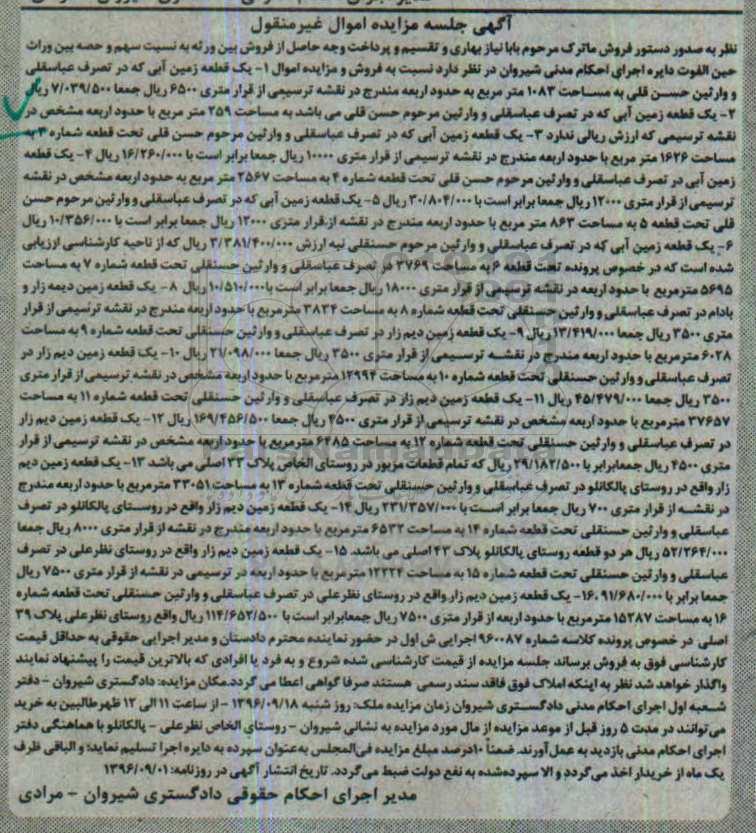 آگهی جلسه مزایده اموال غیرمنقول
نظر به صدور دستور فروش ماترک مرحوم بابا نیاز بهاری و تقسیم و پرداخت وجه حاصل از فروش بین ورثه به نسبت سهم و حصه بین وراث
حین الفوت دایره اجرای احکام مدنی شیروان در نظر دارد نسبت به فروش و مزایده اموال ۱- یک قطعه زمین آبی که در تصرف عباسقلی
و وارثین حسن قلی به مساحت ۱۰۸۳ متر مربع به حدود اربعه مندرج در نقشه ترسیمی از قرار متری ۶۵۰۰ ریال جمعا ۷/۰۳۹/۵۰۰ ریال
۲- یک قطعه زمین آبی که در تصرف عباسقلی و وارثین مرحوم حسن قلی می باشد به مساحت ۲۵۹ متر مربع با حدود اربعه مشخص در
نقشه ترسیمی که ارزش ریالی ندارد ۳- یک قطعه زمین آبی که در تصرف عباسقلی و وارثین مرحوم حسن قلی تحت قطعه شماره ۳ به
مساحت ۱۶۲۶ متر مربع با حدود اربعه مندرج در نقشه ترسیمی از قرار متری ۱۰۰۰۰ ریال جمعا برابر است با ۱۶/۲۶۰/۰۰۰ ریال ۴- یک قطعه
زمین آبی در تصرف عباسقلی و وارثین مرحوم حسن قلی تحت قطعه شماره ۴ به مساحت ۲۵۶۷ متر مربع به حدود اربعه مشخص در نقشه
ترسیمی از قرار متری ۱۲۰۰۰ ریال جمعا برابر است با ۳۰/۸۰۴/۰۰۰ ریال ۵- یک قطعه زمین آبی که در تصرف عباسقلی و وارثین مرحوم حسن
قلی تحت قطعه ۵ به مساحت ۸۶۳ متر مربع با حدود اربعه مندرج در نقشه از قرار متری ۱۲۰۰۰ ریال جمعا برابر است با ۱۰/۳۵۶/۰۰۰ ریال
۶- یک قطعه زمین آبی که در تصرف عباسقلی و وارثین مرحوم حسنقلی نیه ارزش ۳/۳۸۱/۴۰۰/۰۰۰ ریال که از ناحیه کارشناسی ارزیابی
شده است که در خصوص پرونده تحت قطعه ۶ به مساحت ۳۷۶۹ در تصرف عباسقلی و وارثین حسنقلی تحت قطعه شماره ۷ به مساحت
۵۶۹۵ مترمربع با حدود اربعه در نقشه ترسیمی از قرار متری ۱۸۰۰۰ ریال جمعا برابر است با ۱۰/۵۱۰/۰۰۰ ریال ۸- یک قطعه زمین دیمه زار و
بادام در تصرف عباسقلی و وارثین حسنقلی تحت قطعه شماره ۸ به مساحت ۳۸۳۴ مترمربع با حدود اربعه مندرج در نقشه ترسیمی از قرار
متری ۳۵۰۰ ریال جمعا ۱۳/۴۱۹/۰۰۰ ریال ۹- یک قطعه زمین دیم زار در تصرف عباسقلی و وارثین حسنقلی تحت قطعه شماره ۹ به مساحت
۶۰۲۸ مترمربع با حدود اربعه مندرج در نقشه ترسیمی از قرار متری ۳۵۰۰ ریال جمعا ۲۱/۰۹۸/۰۰۰ ریال ۱۰- یک قطعه زمین دیم زار در
تصرف عباسقلی و وارثین حسنقلی تحت قطعه شماره ۱۰ به مساحت ۱۲۹۹۴ مترمربع با حدود اربعه مشخص در نقشه ترسیمی از قرار متری
۳۵۰۰ ریال جمعا ۴۵/۴۷۹/۰۰۰ ریال ۱۱- یک قطعه زمین دیم زار در تصرف عباسقلی و وارثین حسنقلی تحت قطعه شماره ۱۱ به مساحت
۳۷۶۵۷ مترمربع با حدود اربعه مشخص در نقشه ترسیمی از قرار متری ۴۵۰۰ ریال جمعا ۱۶۹/۴۵۶/۵۰۰ ریال ۱۲- یک قطعه زمین دیم زار
در تصرف عباسقلی و وارثین حسنقلی تحت قطعه شماره ۱۲ به مساحت ۶۴۸۵ مترمربع با حدود اربعه مشخص در نقشه ترسیمی از قرار
متری ۴۵۰۰ ریال جمعابرابر با ۲۹/۱۸۲/۵۰۰ ریال که تمام قطعات مزبور در روستای الخاص پلاک ۳۳ اصلی می باشد ۱۳- یک قطعه زمین دیم
زار واقع در روستای پالکانلو در تصرف عباسقلی و وارثین حسنقلی تحت قطعه شماره ۱۳ به مساحت ۳۳۰۵۱ مترمربع با حدود اربعه مندرج
در نقشه از قرار متری ۷۰۰ ریال جمعا برابر است با ۲۳۱/۳۵۷/۰۰۰ ریال ۱۴- یک قطعه زمین دیم زار واقع در روستای پالکانلو در تصرف
عباسقلی و وارثین حسنقلی تحت قطعه شماره ۱۴ به مساحت ۶۵۳۳ مترمربع با حدود اربعه مندرج در نقشه از قرار متری ۸۰۰۰ ریال جمعا
۵۲/۲۶۴/۰۰۰ ریال هر دو قطعه روستای پالکانلو پلاک ۴۳ اصلی می باشد. ۱۵- یک قطعه زمین دیم زار واقع در روستای نظرعلی در تصرف
عباسقلی و وارثین حسنقلی تحت قطعه شماره ۱۵ به مساحت ۱۲۲۲۴ مترمربع با حدود اربعه در ترسیمی در نقشه از قرار متری ۷۵۰۰ ریال
جمعا برابر با ۹۱/۶۸۰/۰۰۰ ۱۶- یک قطعه زمین دیم زار واقع در روستای نظرعلی در تصرف عباسقلی و وارثین حسنقلی تحت قطعه شماره
۱۶ به مساحت ۱۵۲۸۷ مترمربع با حدود اربعه از قرار متری ۷۵۰۰ ریال جمعابرابر است با ۱۱۴/۶۵۲/۵۰۰ ریال واقع روستای نظرعلی پلاک ۳۹
اصلی در خصوص پرونده کلاسه شماره ۹۶۰۰۸۷ اجرایی ش اول در حضور نماینده محترم دادستان و مدیر اجرایی حقوقی به حداقل قیمت
کارشناسی فوق به فروش برساند جلسه مزایده از قیمت کارشناسی شده شروع و به فرد یا افرادی که بالاترین قیمت را پیشنهاد نمایند
واگذار خواهد شد نظر به اینکه املاک فوق فاقد سند رسمی هستند صرفا گواهی اعطا می گردد.مکان مزایده: دادگستری شیروان - دفتر
شعبه اول اجرای احکام مدنی دادگستری شیروان زمان مزایده ملک: روز شنبه ۱۳۹۶/۰۹/۱۸ - از ساعت ۱۱ الی ۱۲ ظهر طالبین به خرید
می توانند در مدت ۵ روز قبل از موعد مزایده از مال مورد مزایده به نشانی شیروان - روستای الخاص نظرعلی - پالکانلو با هماهنگی دفتر
اجرای احکام مدنی بازدید به عمل آورند. ضمناً ۱۰درصد مبلغ مزایده فی‌المجلس به‌عنوان سپرده به دایره اجرا تسلیم نماید؛ و الباقی ظرف
یک ماه از خریدار اخذ می‌گردد و الا سپرده‌شده به نفع دولت ضبط می‌گردد. تاریخ انتشار آگهی در روزنامه: ۱۳۹۶/۰۹/۰۱
مدیر اجرای احکام حقوقی دادگستری شیروان - مرادی